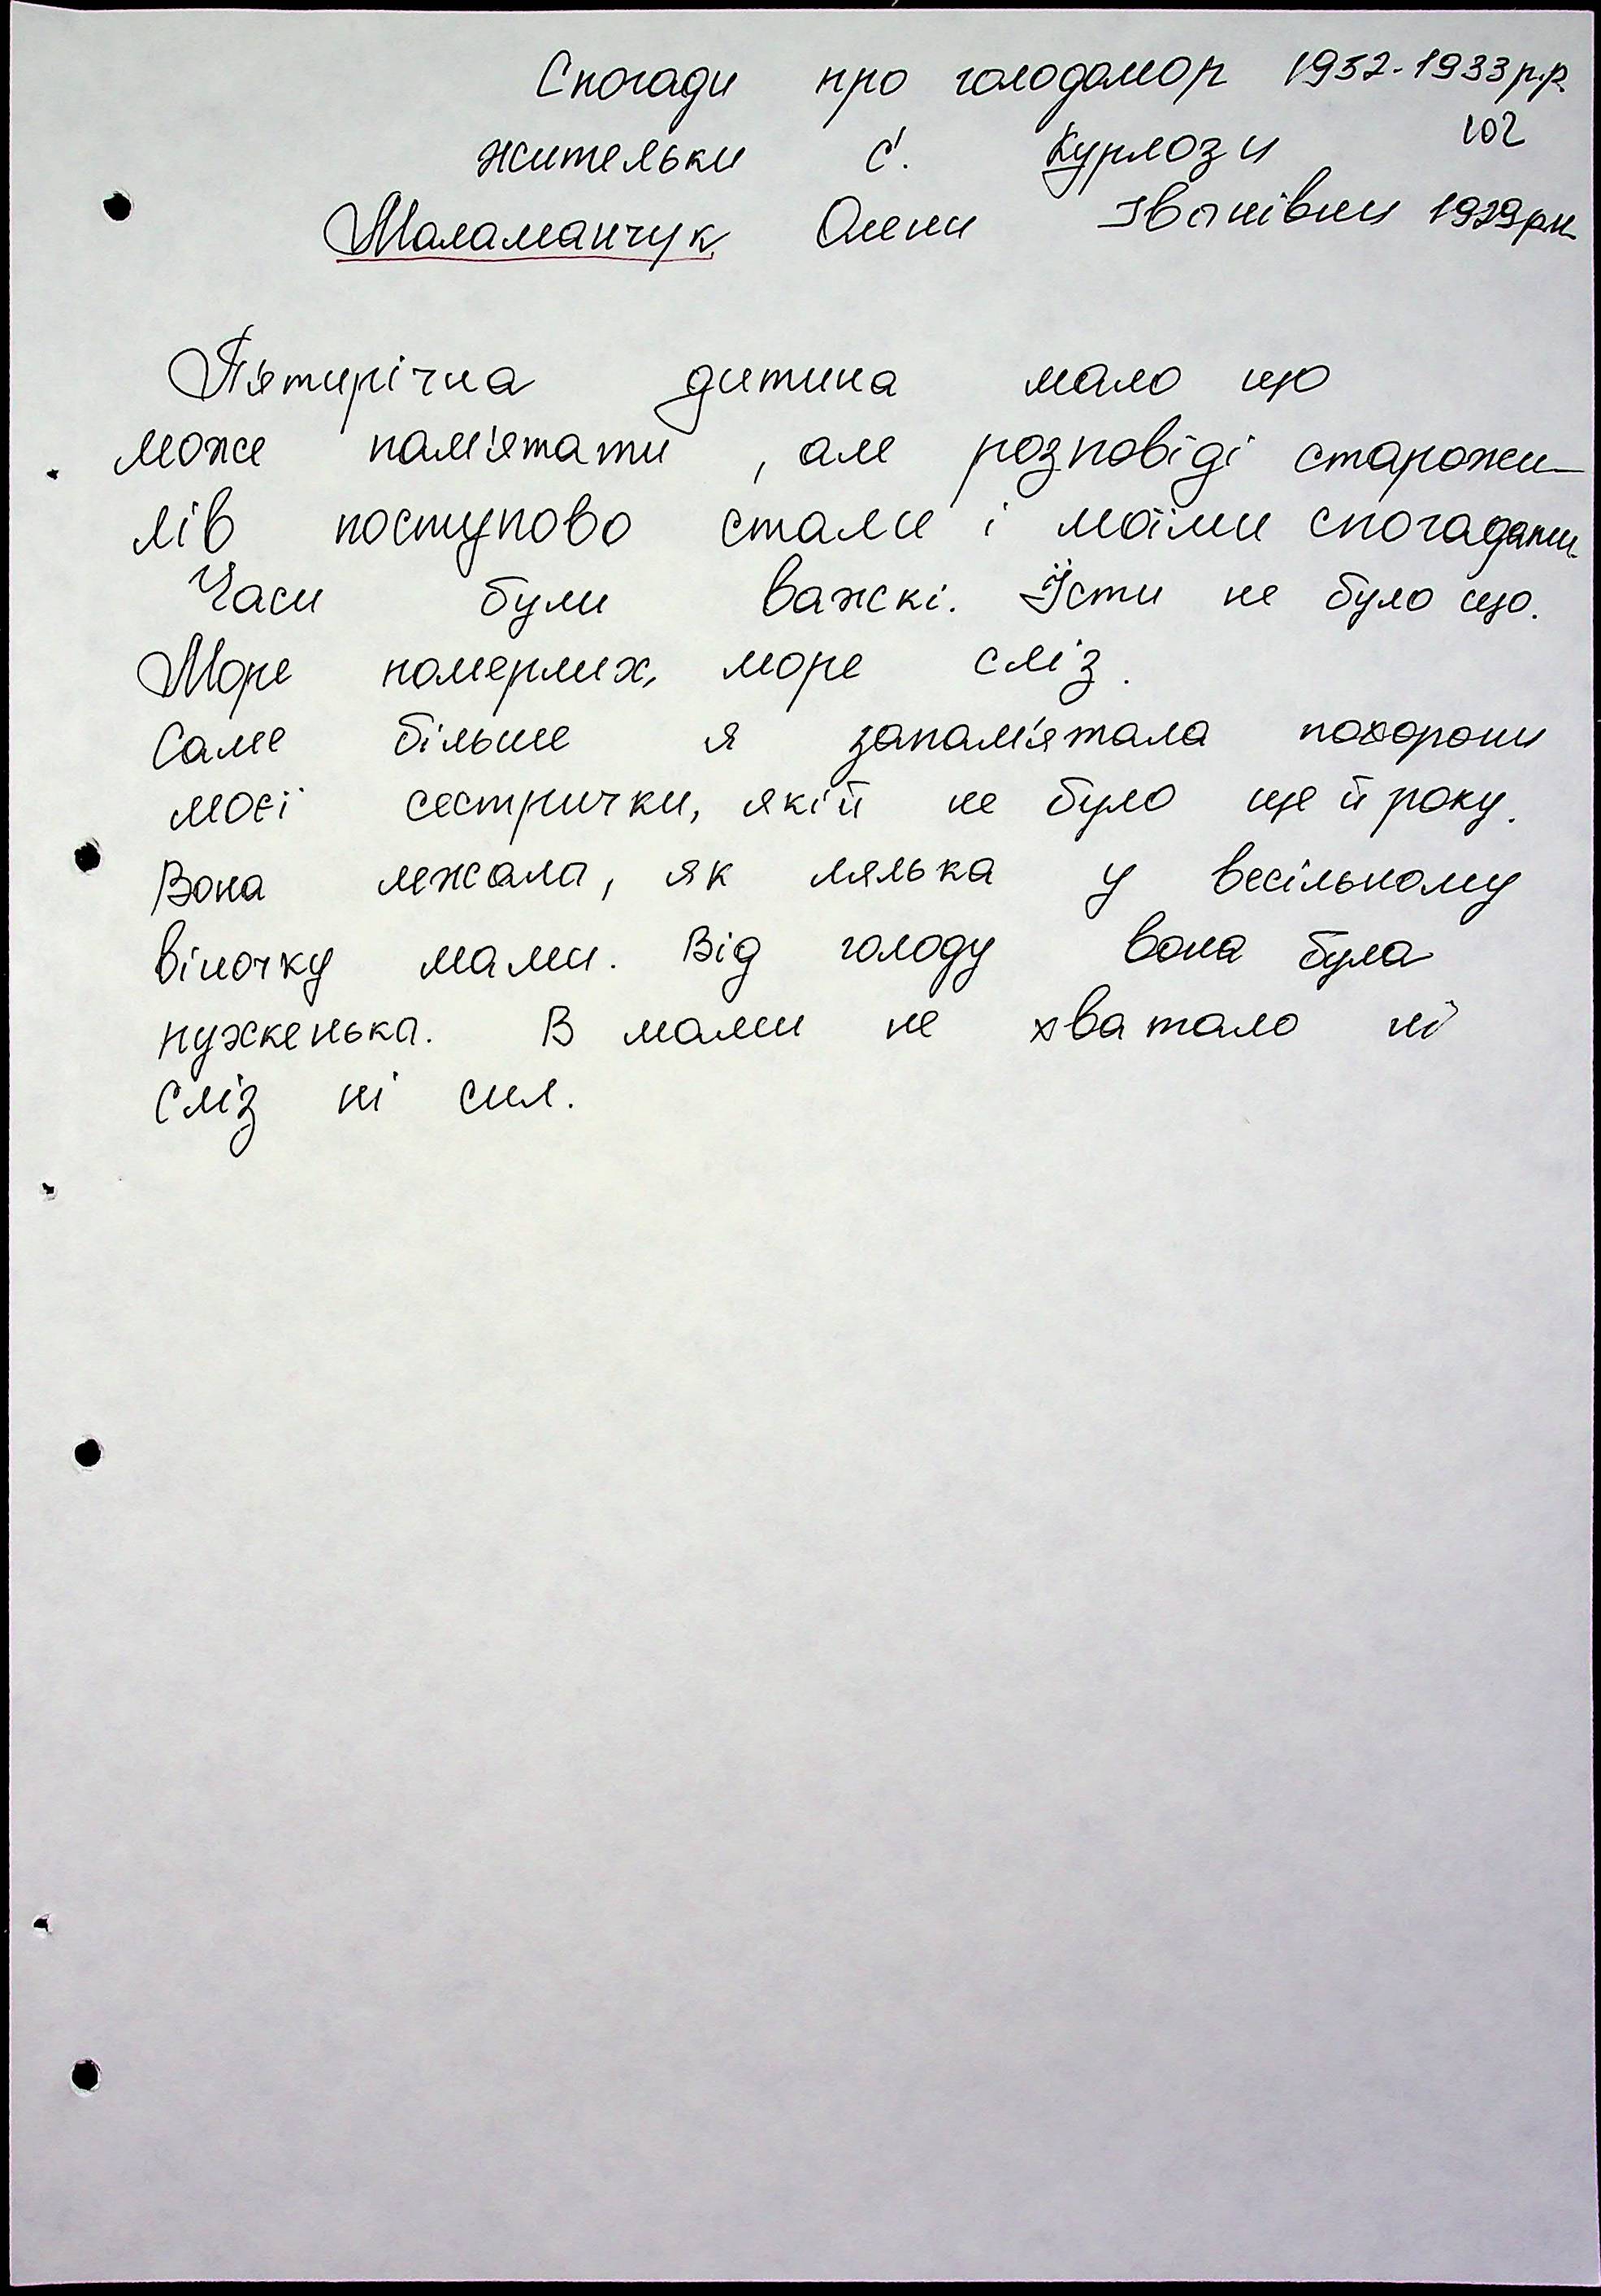 Спогади про голодомор 1932-1933 р.р.
102
жительки с. Курлози
Маламанчук Олени Іванівни 1929 рн
П'ятирічна дитина мало що
може пам'ятати, але розповіді старожи-
лів поступово стали і моїми спогадами.
Часи були важкі. Їсти не було що.
Море померлих, море сліз.
Саме більше я запам'ятала похорони
моєї сестрички, якій не було ще й року.
Вона лежала, як лялька у весільному
віночку мами. Від голоду вона була
пужкенька. В мами не хватало ні
сліз ні сил.